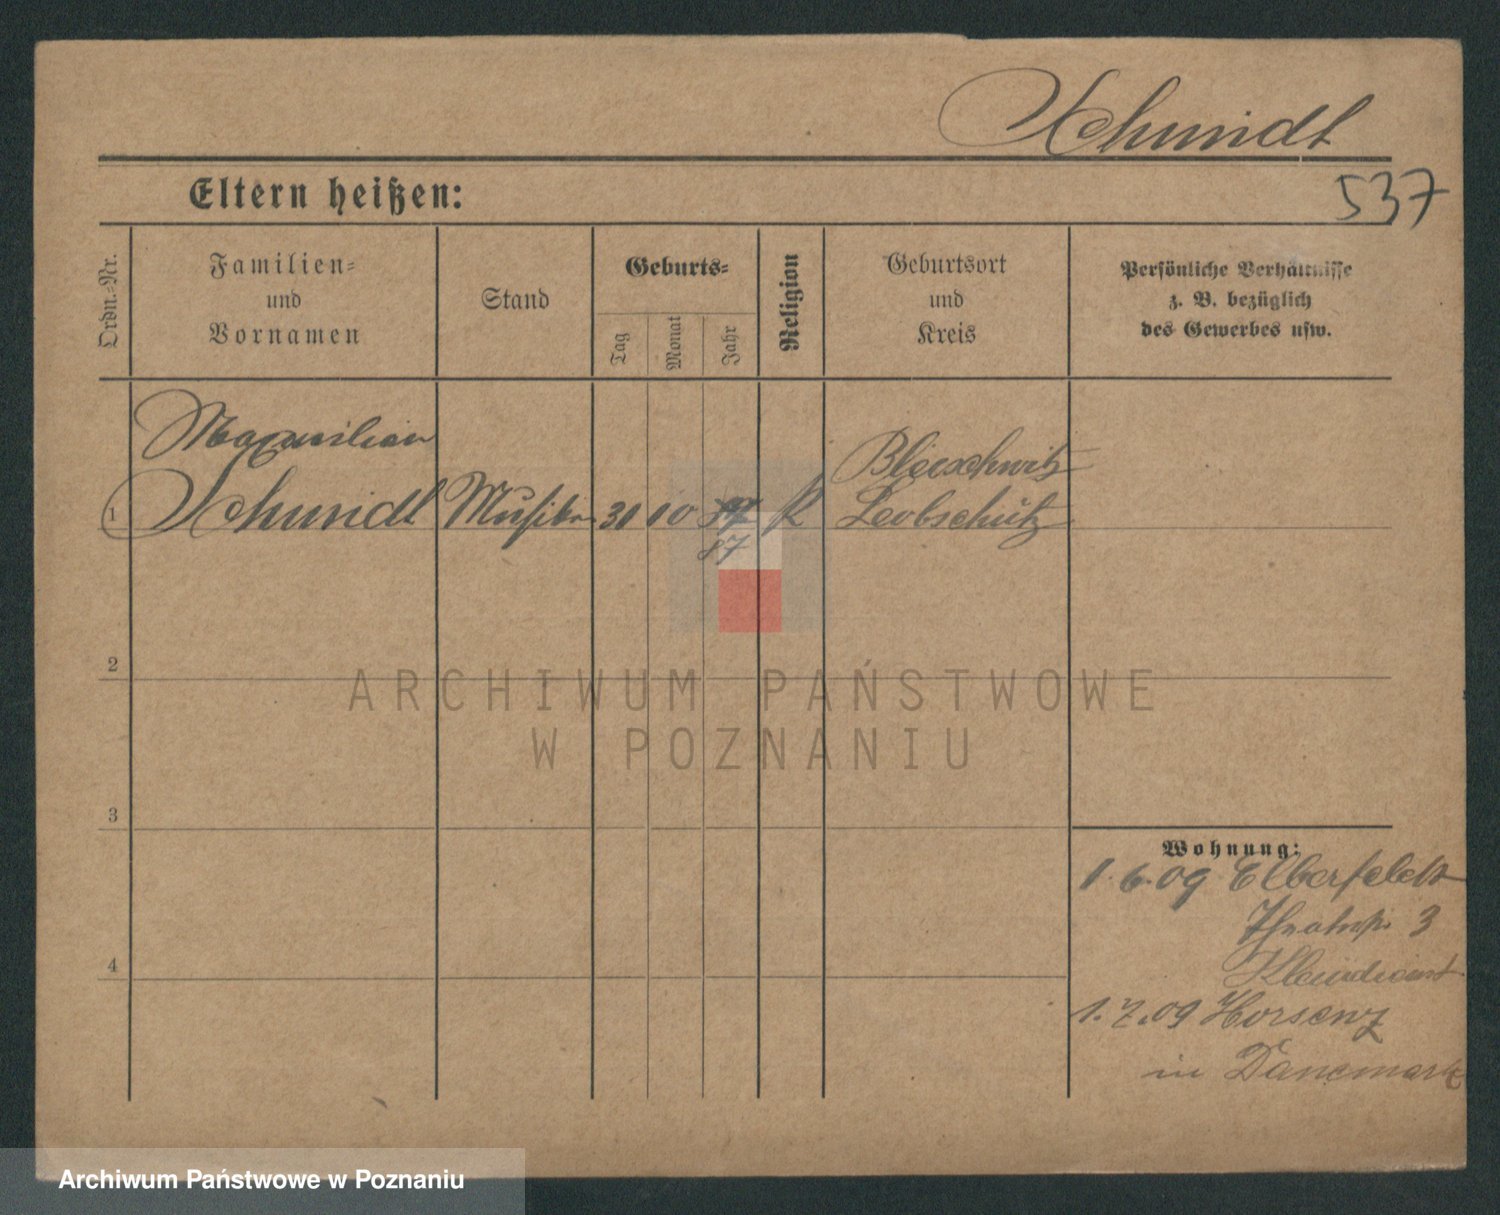 Schmidt
Eltern heißen:
537
Ordn.-Nr.
Familien-
und
Vornamen
Stand
Geburts-
Tag
Monat
Jahr
Religion
Geburtsort
und
Kreis
Persönliche Verhältnisse
z. B. bezüglich
des Gewerbes usw.
Maxmilian
Bleischwitz
1 Schmidt Musiker 31 10 K Leobschütz
87
2
3
4
Wohnung:
1.6.09 Elberfeldt
3
1.7.09 Horsenz
in Danemark
ARCHIWUM PAŃSTWOWE
W POZNANIU
Archiwum Państwowe w Poznaniu